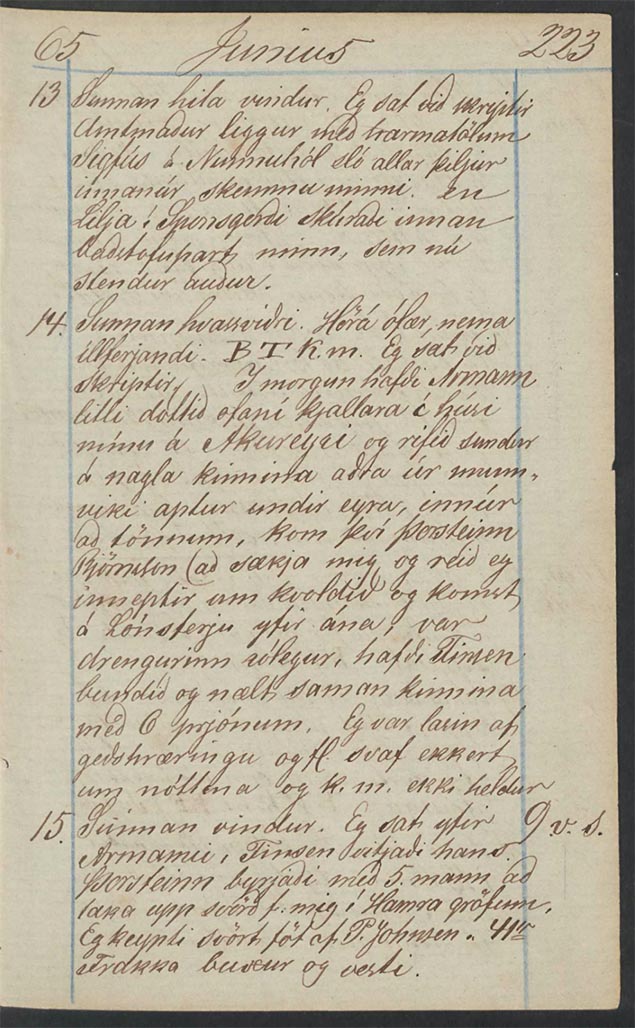 65 Junius 223
13 Sunnan hita vindur. Eg sat við skriptir
Amtmaður liggur með
Sigfús á Nunnuhól sló allar þiljur
innanúr skemmu minni. en
Lilja í Spónsgerði skúraði innan
baðstofupart minn, sem nú
stendur auður.
14. Sunnan hvassviðri. Hörá ófær, nema
illferjandi. B T K. m. Eg sat við
skriptir, Í morgun hafði Armann
litli dottið ofaní kjallara í húsi
mínu á Akureyri og rifið sundur
á nagla kinnina aðra úr munn-
viki aptur undir eyra, inn úr
að tönnum, kom því Þorsteinn
Björnsson (að sækja mig og reið eg
inneptir um kvoldið og komst
á Lónsferju yfir ána, var
drengurinn rólegur, hafði Finsen
bundið og nælt saman kinnina
með 6 prjónum. Eg var lasin af
geðshræringu og fl. svaf ekkert
um nóttina og k. m. ekki heldur
15. Sunnan vindur. Eg sat yfir 9 v. s.
Armanni, Finsen vitjaði hans.
Þorsteinn byrjaði með 5 mann að
taka upp svörð f. mig í Hamra gröfum.
Eg keypti svört föt af P. Johnsen " 41
Frakka buxur og vesti.